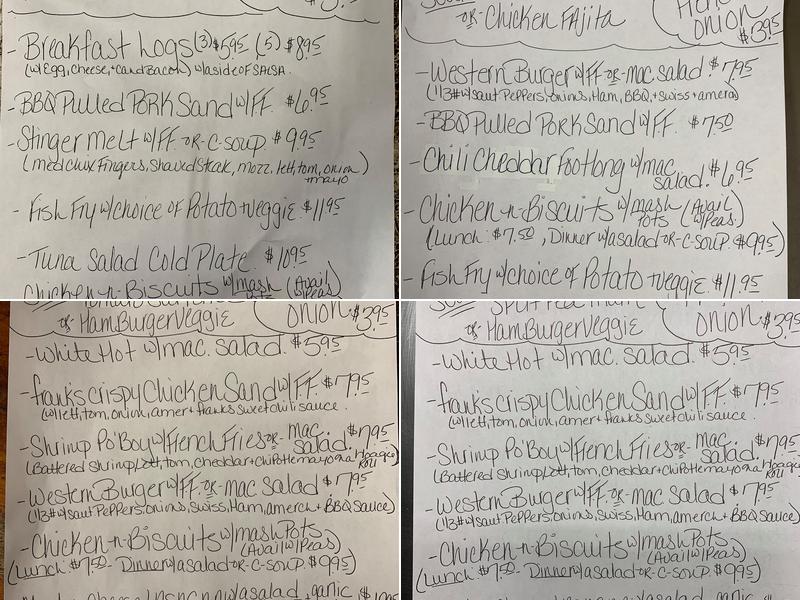 - Breakfast Logs (3) $5.95 (5) $8.95
(w/Egg, Cheese, + Cand Bacon) w/a side of Salsa.
- BBQ Pulled Pork Sand w/FF. $6.95
- Stinger Melt w/FF. -or- C-soup. $9.95
(med chix Fingers, Shaved Steak, mozz. lett, tom, onion + mayo)
- Fish Fry w/choice of Potato + veggie. $11.95
- Tuna Salad Cold Plate. $10.95
Chicken-n-Biscuits w/mash (Avail w/Peas)
-or- Chicken Fajita
onion $3.95
- Western Burger w/FF -or- mac salad. $7.95
(1/3# w/saut Peppers, onions, Ham, BBQ, + Swiss + amer)
- BBQ Pulled Pork Sand w/FF. $7.50
- Chili Cheddar Footlong w/mac salad. $6.95
- Chicken-n-Biscuits w/mash Pots (Avail w/Peas.)
(Lunch: $7.50, Dinner w/a salad -or- C-soup. $9.95)
- Fish Fry w/choice of Potato + veggie. $11.95
or HamBurger Veggie
onion $3.95
- White Hot w/mac. salad. $5.95
- franks crispy Chicken Sand w/FF. $7.95
(w/lett, tom, onion, amer + franks sweet chili sauce.
- Shrimp Po'Boy w/French Fries -or- mac. Salad. $7.95
(Battered shrimp, lett, tom, cheddar + chipotle mayo on a Hoagie Roll
- Western Burger w/FF -or- mac Salad $7.95
(1/3# w/saut Peppers, onions, Swiss, Ham, amer ch + BBQ Sauce)
- Chicken-n-Biscuits w/mash Pots
(Avail w/Peas)
(Lunch: $7.50 - Dinner w/a salad -or- C-soup. $9.95)
Split Pea Ham
or HamBurger Veggie
onion $3.95
- White Hot w/mac. salad. $5.95
- franks crispy Chicken Sand w/FF. $7.95
(w/lett, tom, onion, amer + franks sweet chili sauce.
- Shrimp Po'Boy w/French Fries -or- mac. Salad. $7.95
(Battered shrimp, lett, tom, cheddar + chipotle mayo on a Hoagie Roll
- Western Burger w/FF -or- mac Salad $7.95
(1/3# w/saut Peppers, onions, Swiss, Ham, amer ch + BBQ Sauce)
- Chicken-n-Biscuits w/mash Pots
(Avail w/Peas)
(Lunch: $7.50 - Dinner w/a salad -or- C-soup. $9.95)